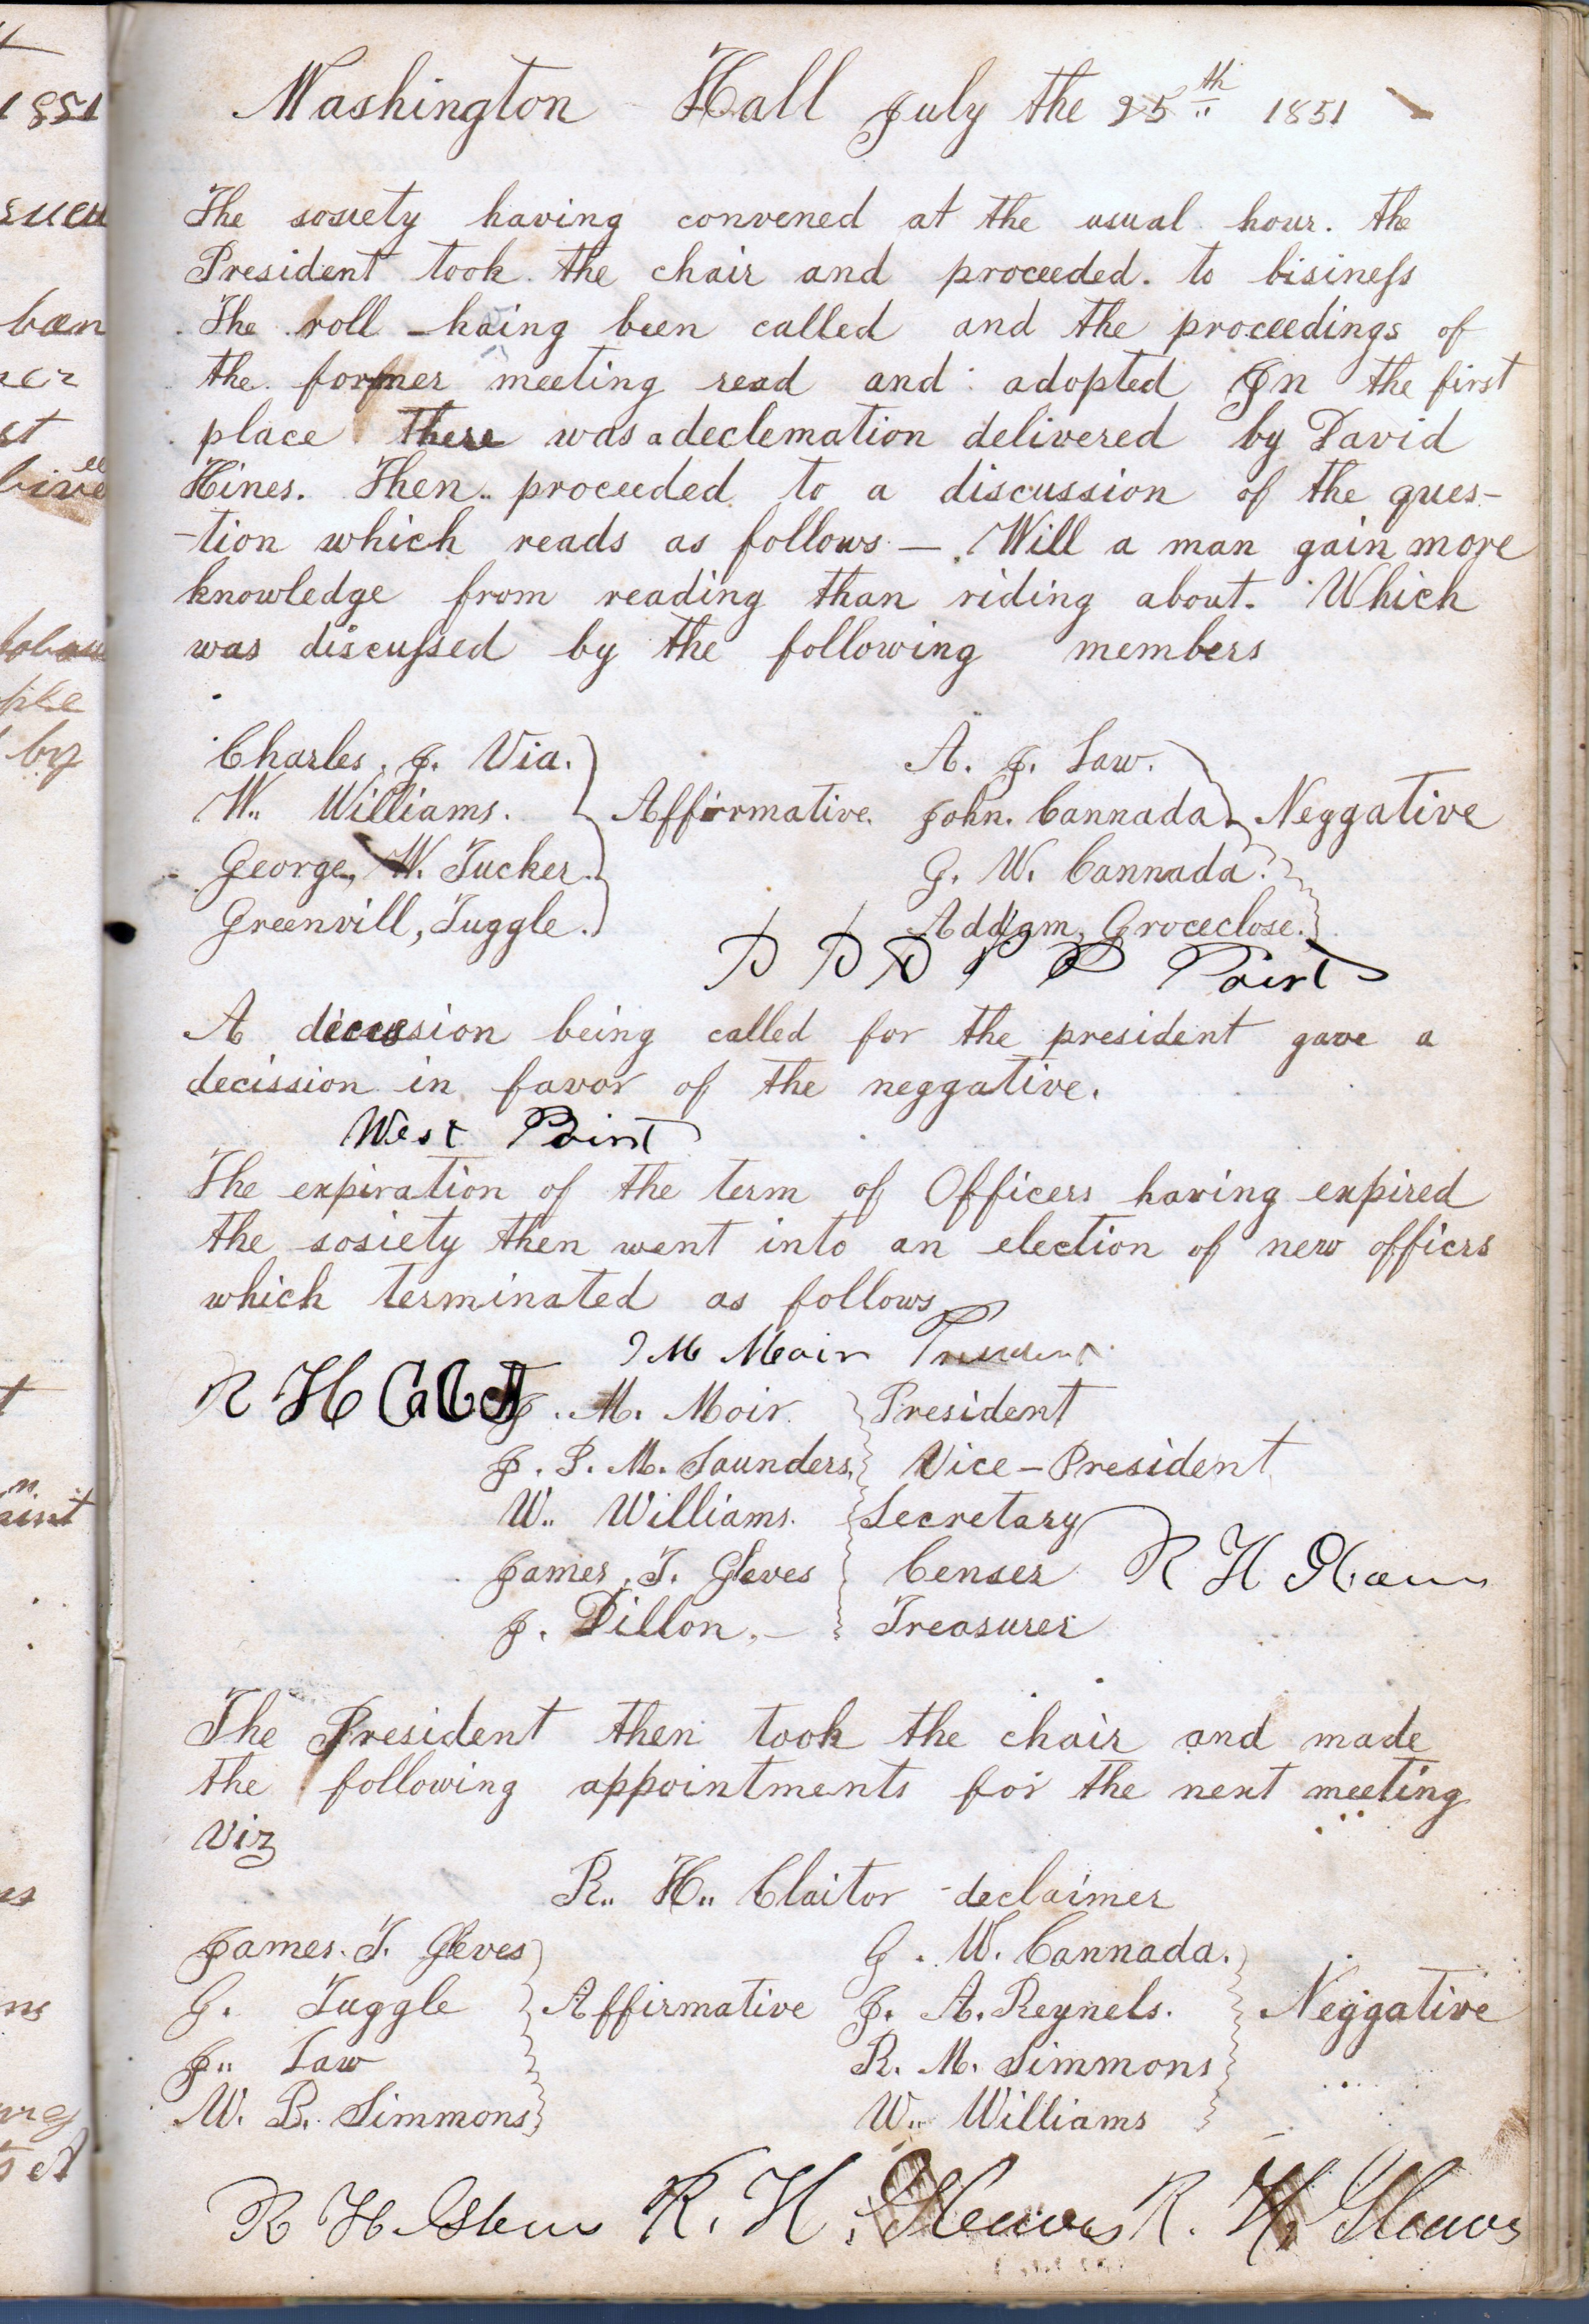 Washington Hall July the 25th 1851
The sosiety having convened at the usual hour. the
President took the chair and proceeded. to bisiness
The roll haing been called and the proceedings of
the former meeting read and adopted In the first
place there was a declemation delivered by David
Hines. Then proceeded to a discussion of the ques-
-tion which reads as follows — Will a man gain more
knowledge from reading than riding about. Which
was discussed by the following members
Charles. J. Via. A. J. Law.
W. Williams. Affirmative John. Cannada Neggative
George, W. Tucker. G. W. Cannada.
Greenvill, Tuggle. Groceclose.
P P P P P Point
A decession being called for the president gave a
decission in favor of the neggative.
West Point
The expiration of the term of Officers having expired
the sosiety then went into an election of new officrs
which terminated as follows
J M Moir President
R H
J. M. Moir. President
J. P. M. Saunders, Vice-President
W. Williams. Secretary
James, T. Gleves Censer R H
J. Dillon. Treasurer
The President then took the chair and made
the following appointments for the next meeting
Viz
R. H. Claitor declaimer
James. T. Gleves G. W. Cannada.
G. Tuggle Affirmative J. A. Reynels. Neggative
J. Law R. M. Simmons
W. B. Simmons W. Williams
R H R. H. Gleaves R. H. Gleaves